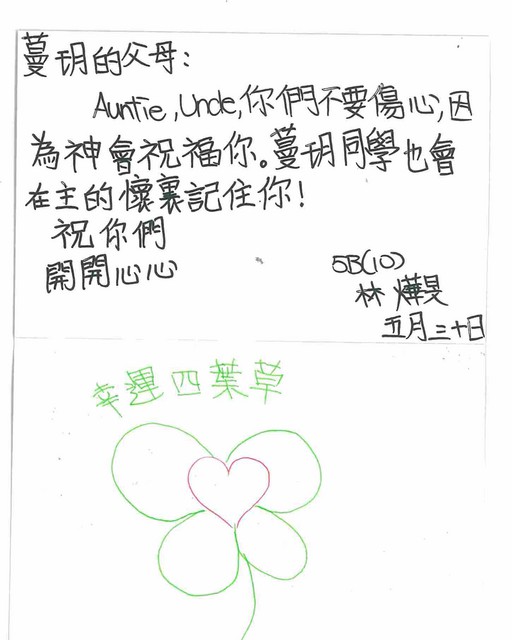 蔓玥的父母：
Auntie,Uncle,你們不要傷心,因
為神會祝福你。蔓玥同學也會
在主的懷裏記住你！
祝你們
開開心心
5B(10)
林燁旻
五月三十日
幸運四葉草